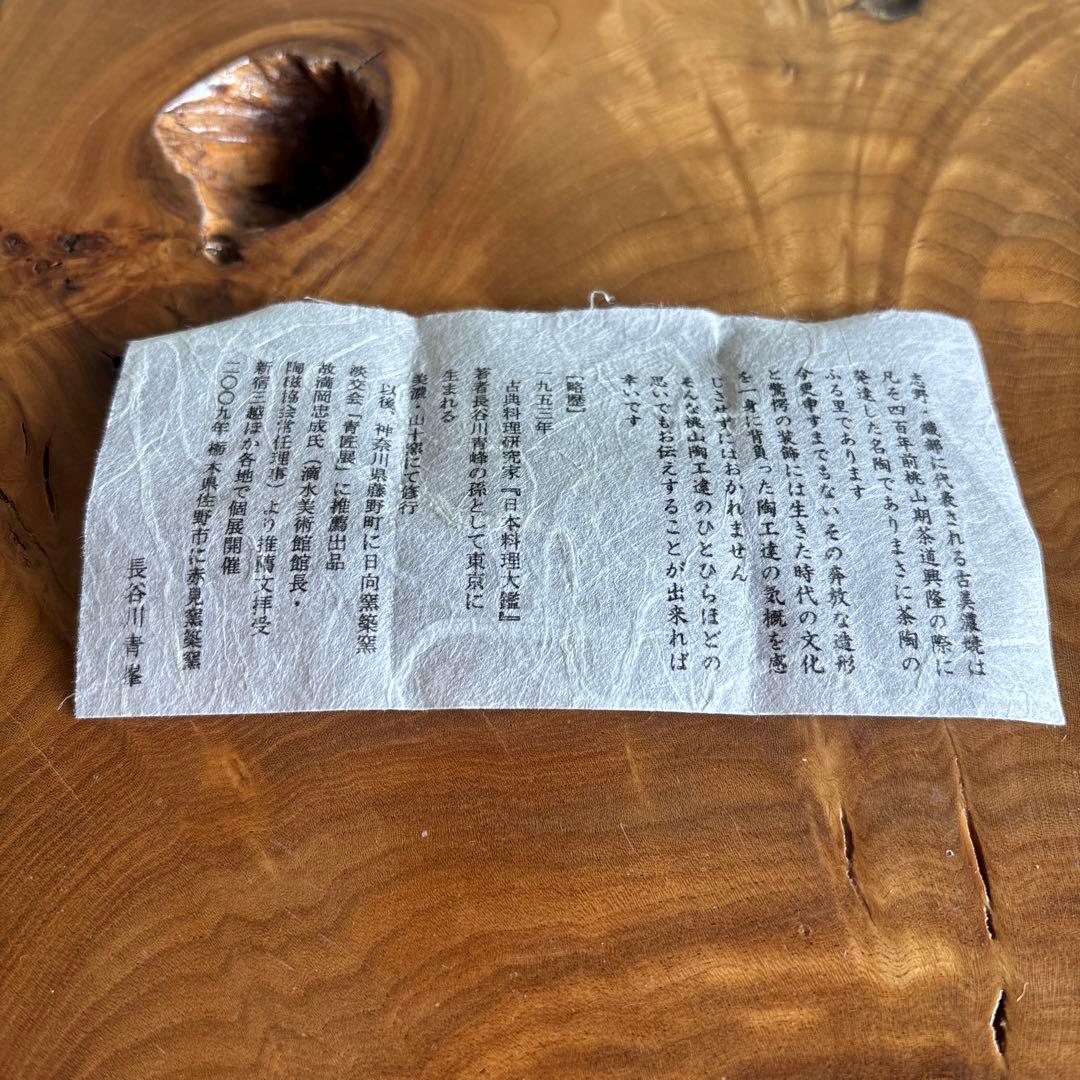 志野・織部に代表される古美濃焼は
凡そ四百年前桃山期茶道興隆の際に
発達した名陶でありまさに茶陶の
ふる里であります
今更申すまでもないその奔放な造形
と驚愕の装飾には生きた時代の文化
を一身に背負った陶工達の気概を感
じさせずにはおかれません
そんな桃山陶工達のひとひらほどの
思いでもお伝えすることが出来れば
幸いです
【略歴】
一九五三年
古典料理研究家『日本料理大鑑』
著者長谷川青峰の孫として東京に
生まれる
美濃・山十窯にて修行
以後、神奈川県藤野町に日向窯築窯
淡交会「青匠展」に推薦出品
故満岡忠成氏（滴水美術館館長・
陶磁協会常任理事）より推薦文拝受
新宿三越ほか各地で個展開催
二〇〇九年 栃木県佐野市に赤見窯築窯
長谷川青峯